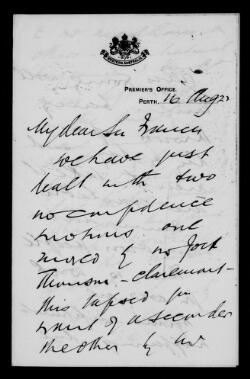 WESTERN AUSTRALIA
PREMIER'S OFFICE,
PERTH. 16 Aug 23
My dear Sir Francis
we have just
dealt with two
no confidence
motions one
moved by
Thomson - Claremont -
this lapsed for
want of a seconder
the other by